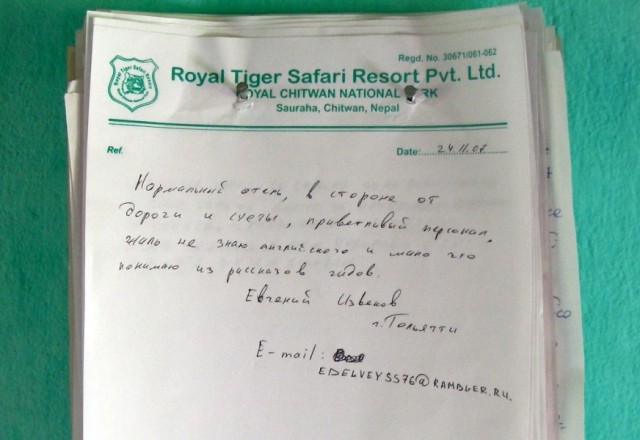 Regd. No. 30671/061-062
Royal Tiger Safari Resort
Royal Tiger Safari Resort Pvt. Ltd.
ROYAL CHITWAN NATIONAL PARK
Sauraha, Chitwan, Nepal
Ref.
Date: 24.11.08
Нормальный отель, в стороне от
дороги и суеты, приветливый персонал,
жаль не знаю английского и мало что
понимаю из рассказов гидов.
Евгений Извеков
г. Тольятти
E-mail:
EDELVEYSS76@RAMBLER.RU.